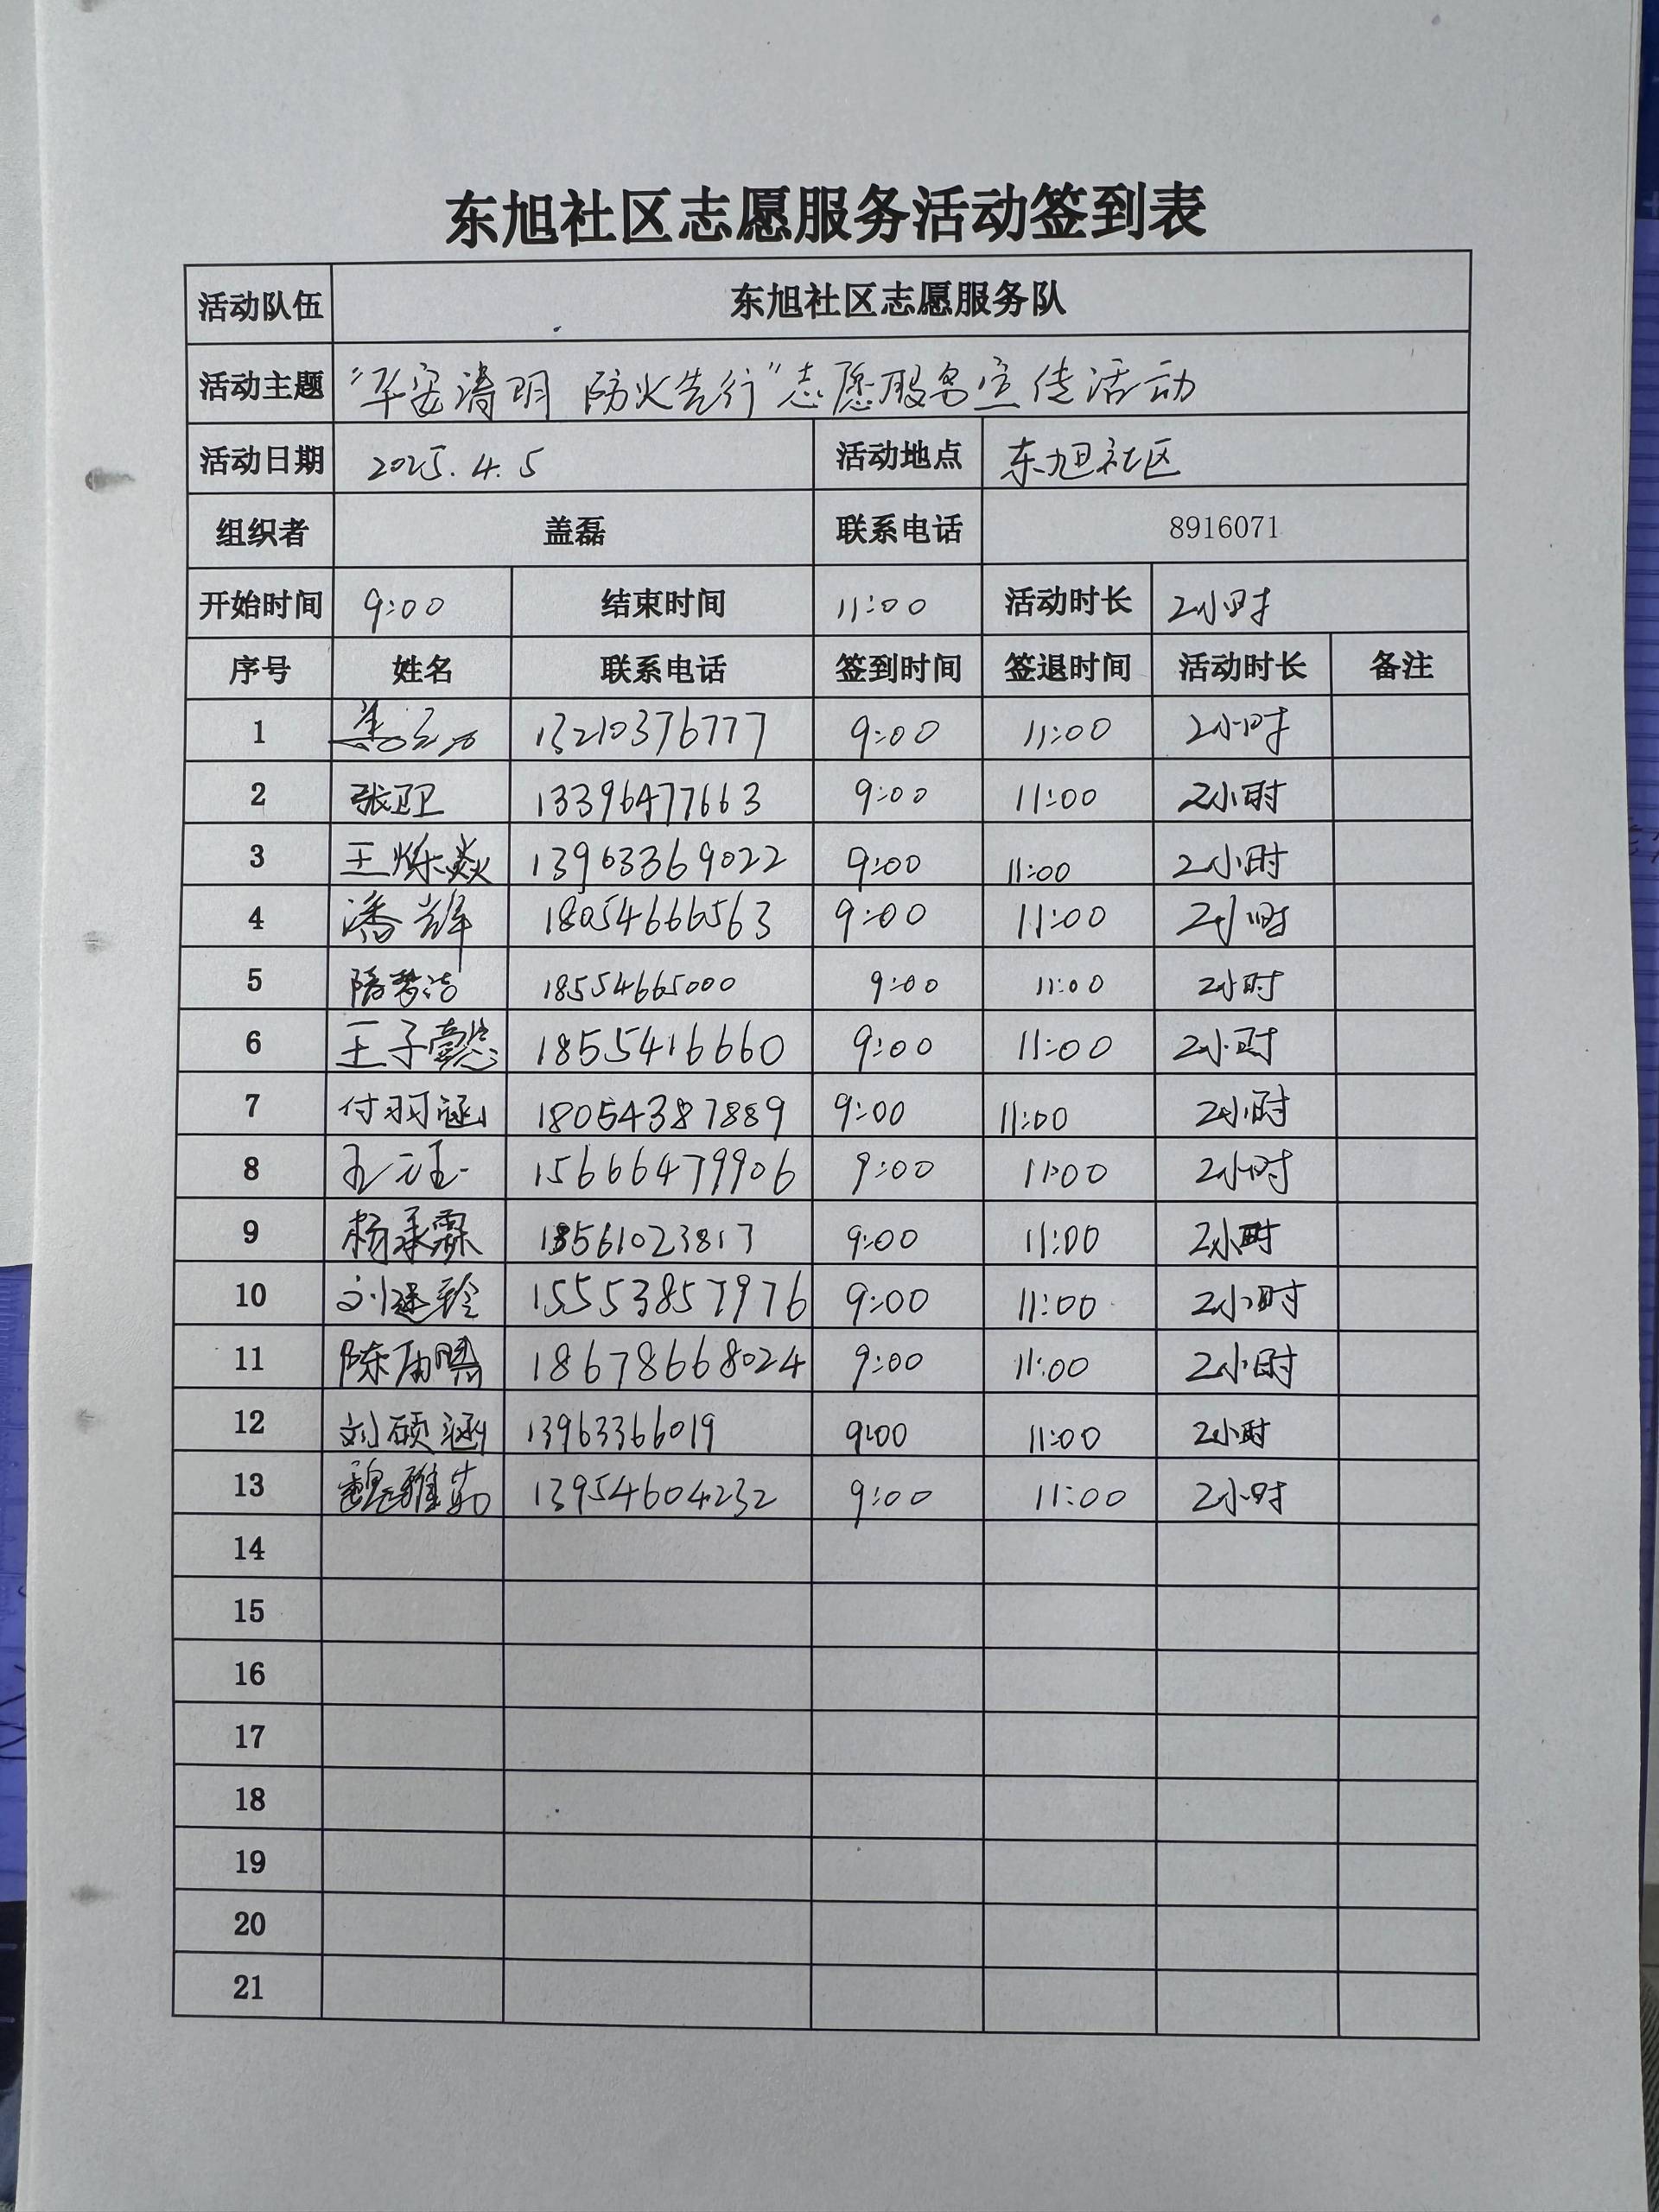 东旭社区志愿服务活动签到表
活动队伍 东旭社区志愿服务队
活动主题 “平安清明 防火先行”志愿服务宣传活动
活动日期 2025.4.5 活动地点 东旭社区
组织者 盖磊 联系电话 8916071
开始时间 9:00 结束时间 11:00 活动时长 2小时
序号 姓名 联系电话 签到时间 签退时间 活动时长 备注
1 13210376777 9:00 11:00 2小时
2 张卫卫 13396477663 9:00 11:00 2小时
3 王烁焱 13963369022 9:00 11:00 2小时
4 潘辉 18054666563 9:00 11:00 2小时
5 隋梦洁 18554665000 9:00 11:00 2小时
6 王子懿 18555416660 9:00 11:00 2小时
7 付羽涵 18054387889 9:00 11:00 2小时
8 王元玉 15666479906 9:00 11:00 2小时
9 杨承霖 18561023817 9:00 11:00 2小时
10 刘 玲 15553857976 9:00 11:00 2小时
11 陈 18678668024 9:00 11:00 2小时
12 刘硕涵 13963366019 9:00 11:00 2小时
13 魏雅茹 13954604232 9:00 11:00 2小时
14
15
16
17
18
19
20
21